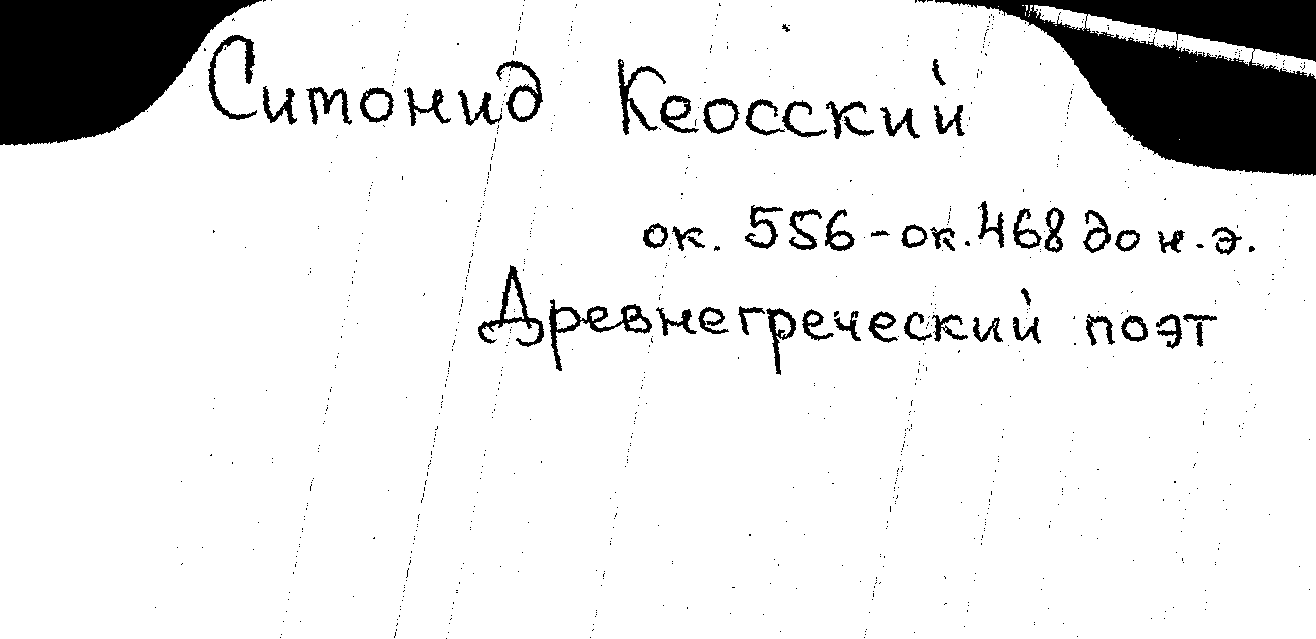 Ситонид Кеосский
ок. 556-ок. 468 до н.э.
Древнегреческий поэт